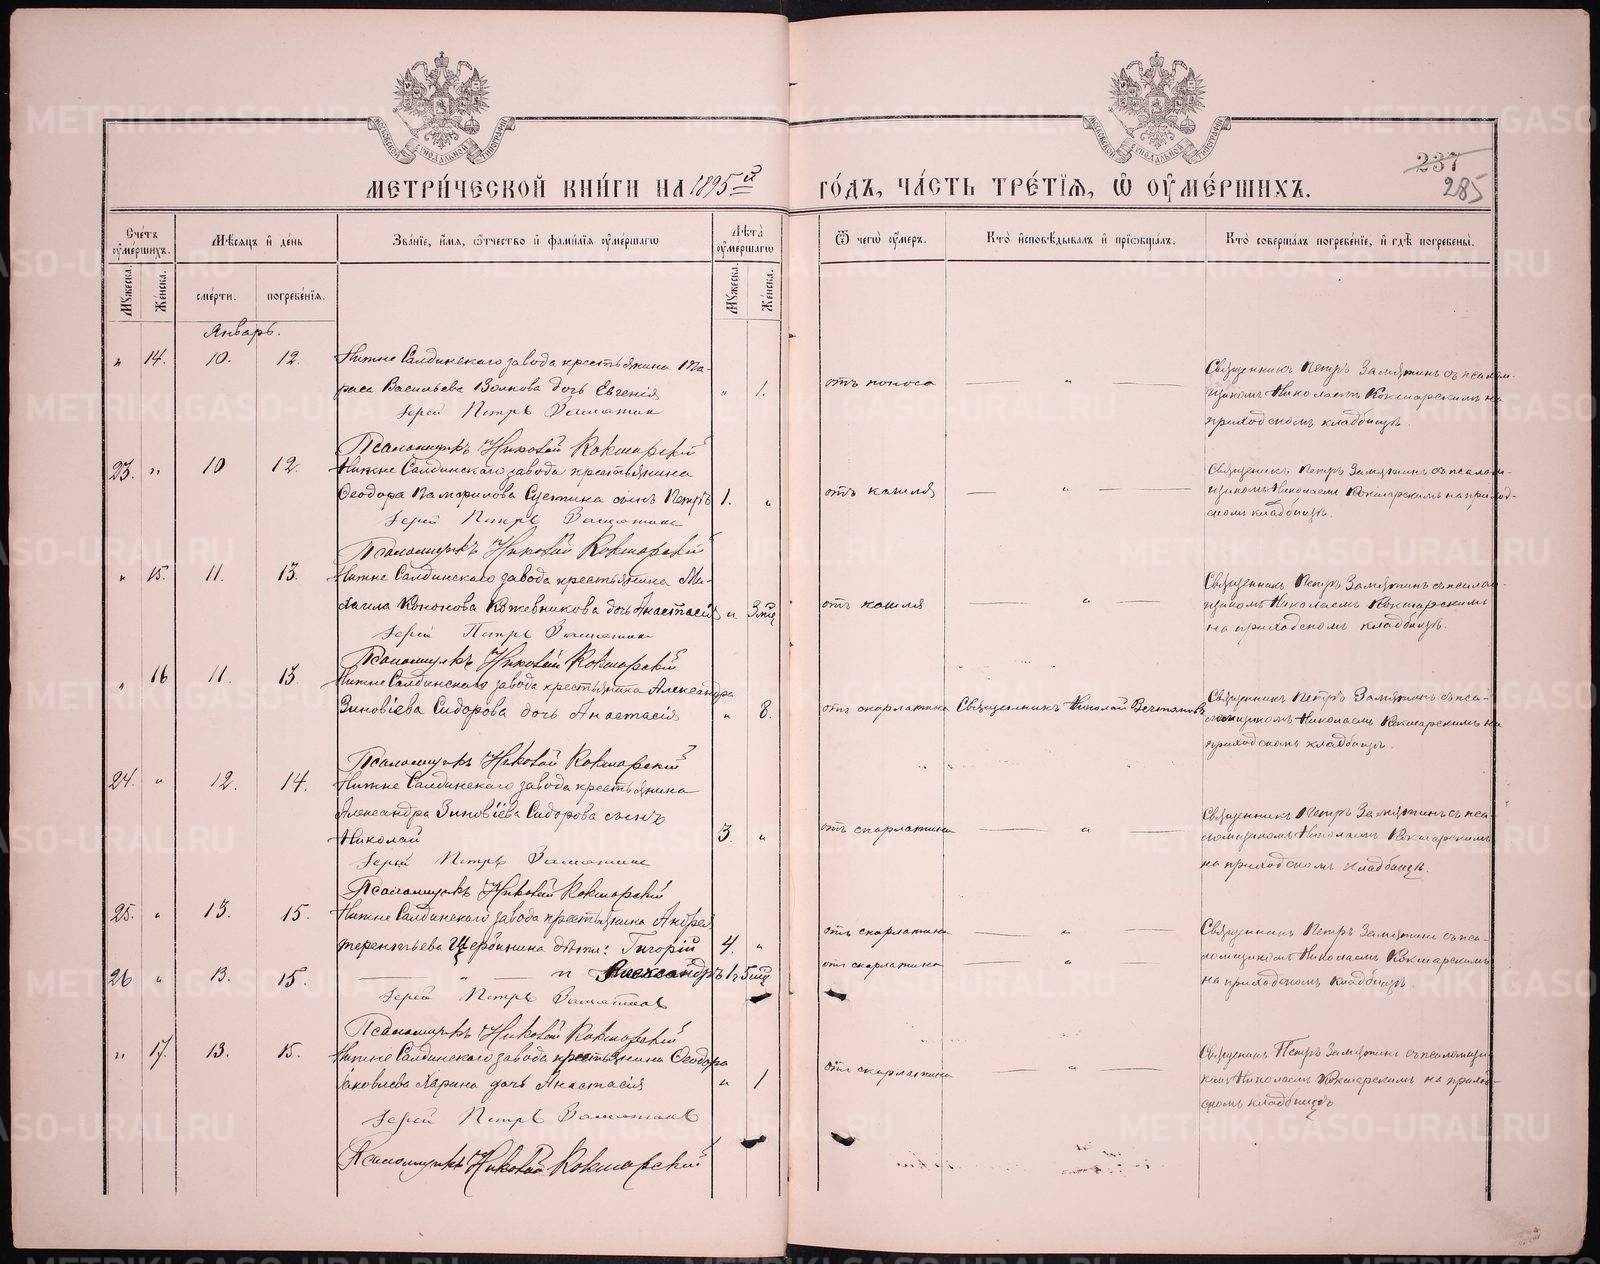 МЕТРИЧЕСКОЙ КНИГИ НА 1895й ГОДЪ, ЧАСТЬ ТРЕТІЯ, Ѿ ОУМЕРШИХЪ.
237
285
МОСКОВСКОЙ СѴНОДАЛЬНОЙ ТИПОГРАФІИ
МОСКОВСКОЙ СѴНОДАЛЬНОЙ ТИПОГРАФІИ
Счетъ оумершихъ.
Мужеска.
Женска.
Мѣсяцъ и день
смерти.
погребенія.
Званіе, имя, отчество и фамилія оумершаго
Лѣта оумершаго
Мужеска.
Женска.
Ѿ чего оумеръ.
Кто исповѣдывалъ и пріобщалъ.
Кто совершалъ погребеніе, и гдѣ погребены.
Январь.
" 14. 10. 12. Нижне Салдинскаго завода крестьянина Та-
раса Васильева Волкова дочь Евгенія " 1. отъ поноса — " —
Священникъ Петръ Замятинъ съ псалом-
щикомъ Николаемъ Кокшарскимъ на
приходскомъ кладбищѣ.
Іерей Петръ Замятинъ
Псаломщикъ Николай Кокшарскій
23. " 10 12. Нижне Салдинскаго завода крестьянина
Ѳеодора Памфилова сынъ Петръ 1. " отъ кашля — " —
Священникъ Петръ Замятинъ съ псалом-
щикомъ Николаемъ Кокшарскимъ на приход-
скомъ кладбищѣ.
Іерей Петръ Замятинъ
Псаломщикъ Николай Кокшарскій
" 15. 11. 13. Нижне Салдинскаго завода крестьянина Ми-
хаила Кононова Кожевникова дочь Анастасія " 3 мц отъ кашля "
Священникъ Петръ Замятинъ съ псалом-
щикомъ Николаемъ Кокшарскимъ
на приходскомъ кладбищѣ.
Іерей Петръ Замятинъ
Псаломщикъ Николай Кокшарскій
" 16 11. 13 Нижне Салдинскаго завода крестьянина Александра
Зиновіева Сидорова дочь Анастасія " 8. отъ скарлатина Священникъ Николай
Священникъ Петръ Замятинъ съ пса-
ломщикомъ Николаемъ Кокшарскимъ на
приходскомъ кладбищѣ.
Псаломщикъ Николай Кокшарскій
24. " 12. 14. Нижне Салдинскаго завода крестьянина
Александра Зиновіева Сидорова сынъ
Николай 3. " отъ скарлатина — " —
Священникъ Петръ Замятинъ съ пса
ломщикомъ Николаемъ Кокшарскимъ
на приходскомъ кладбищѣ.
Іерей Петръ Замятинъ
Псаломщикъ Николай Кокшарскій
25. " 13. 15. Нижне Салдинскаго завода крестьянина Андрея
Терентьева Щербинина дѣти: Гигорій 4. " отъ скарлатина — " —
26 " 13. 15. — " — и Александръ 1 г 5 мц отъ скарлатина — " —
Священникъ Петръ Замятинъ съ пса-
ломщикомъ Николаемъ Кокшарскимъ
на приходскомъ кладбищѣ.
Іерей Петръ Замятинъ
Псаломщикъ Николай Кокшарскій
" 17. 13. 15. Нижне Салдинскаго завода крестьянина Ѳеодора
Іаковлева Ларина дочь Анастасія " 1 отъ скарлатина — " —
Священникъ Петръ Замятинъ съ псаломщи-
комъ Николаемъ Кокшарскимъ на приход-
скомъ кладбищѣ
Іерей Петръ Замятинъ
Псаломщикъ Николай Кокшарскій
METRIKI.GASO-URAL.RU